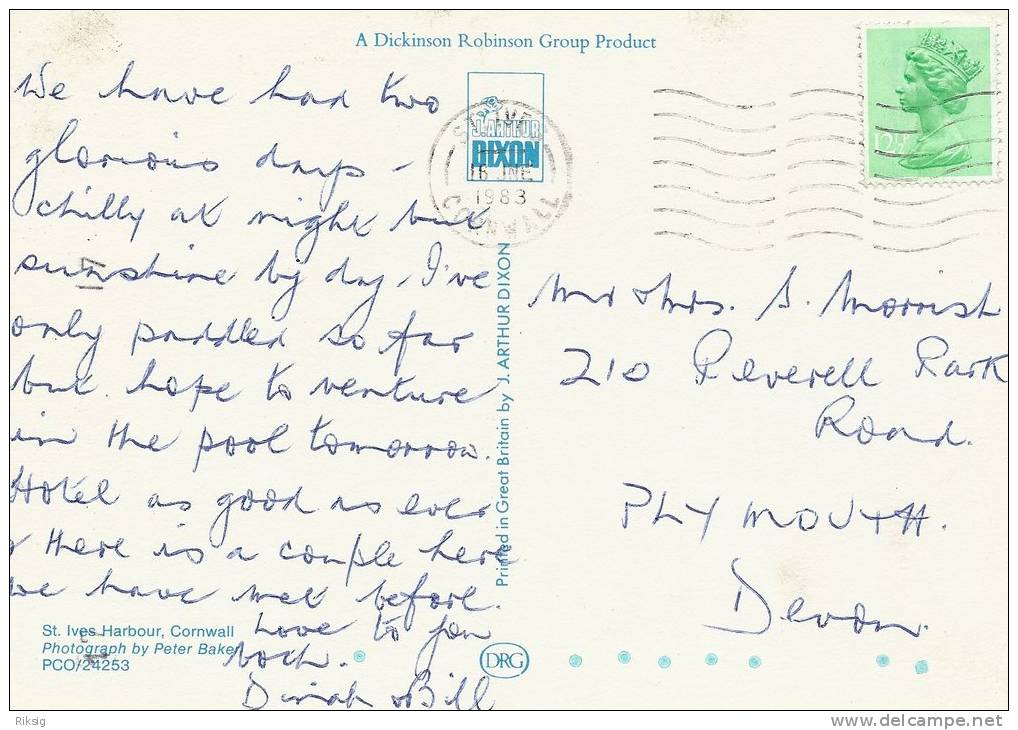 A Dickinson Robinson Group Product
We have had two
glorious days -
chilly at night but
sunshine by day. I've
only paddled so far
but hope to venture
in the pool tomorrow.
Hotel as good as ever
& there is a couple here
we have met before.
Love to you
both.
Dinah & Bill
St. Ives Harbour, Cornwall
Photograph by Peter Baker
PCO/24253
J. ARTHUR
DIXON
ST. IVES
16 JNE
1983
CORNWALL
Printed in Great Britain by J. ARTHUR DIXON
DRG
12½P
Mr & Mrs. S. Morrish
210 Peverell Park
Road.
PLYMOUTH.
Devon.
Riksig
delcampe.net